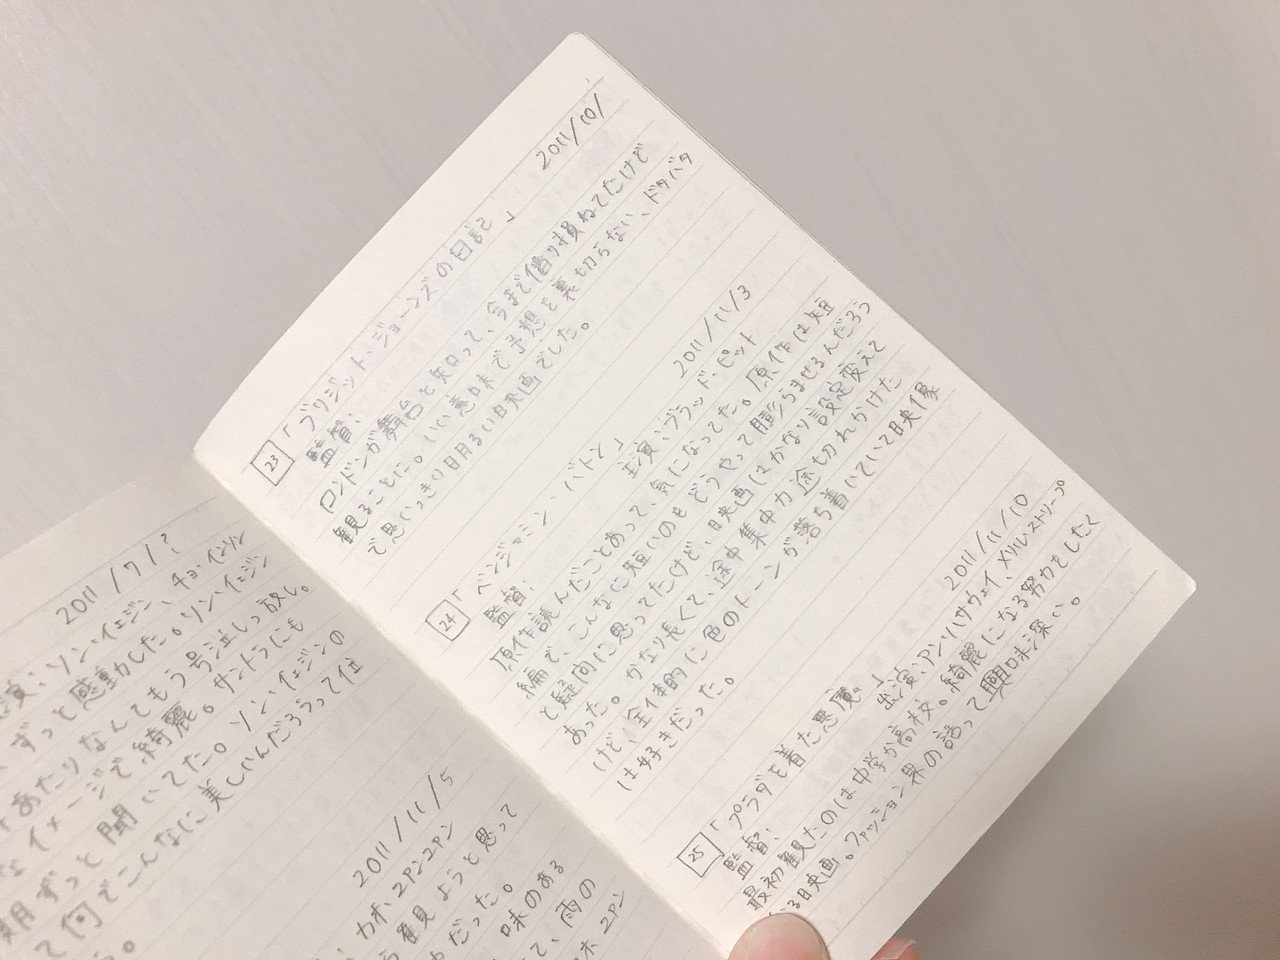 2011/7/?
演:ソン・イェジン、チョ・インソン
ずっと感動した。ソン・イェジン
あたりなんてもう号泣しっ放し。
なイメージで綺麗。サントラにも
期ずっと聞いてた。ソン・イェジンの
て何でこんなに美しいんだろうって位
。
2011/11/5
カオ、ユアン・ユアン
観ようと思って
だった。
味のある
て、雨の
ユアン
2011/10/
23 「ブリジット・ジョーンズの日記」
監督:
ロンドンが舞台と知って、今まで借り損ねてたけど
観ることに。いい意味で予想を裏切らない、ドタバタ
で思いっきり明るい映画でした。
2011/11/3
24 「ベンジャミン・バトン」
監督: 主演:ブラッド・ピット
原作読んだことあって、気になってた。原作は短
編で、こんなに短いのもどうやって膨らませるんだろう
と疑問に思ってたけど、映画はかなり設定変えて
あった。かなり長くて、途中集中力途切れかけた
けど、全体的に色のトーンが落ち着いていて映像
は好きだった。
2011/11/10
25 「プラダを着た悪魔。」
監督: 出演:アン・ハサウェイ、メリル・ストリープ
最初観たのは中学か高校。綺麗になる努力をしたく
なる映画。ファッション界の話って興味深い。